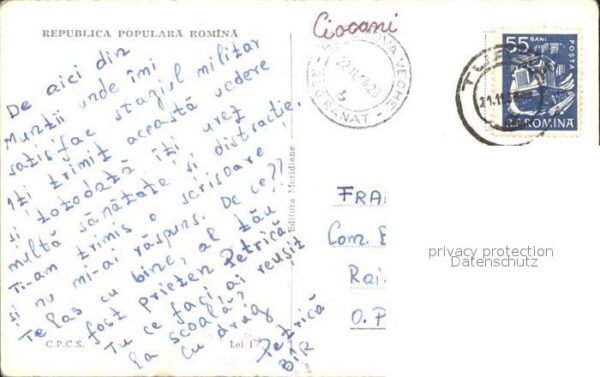 REPUBLICA POPULARĂ ROMÎNĂ
De aici din
Munții unde îmi
satisfac stagiul militar
îți trimit această vedere
și totodată îți urez
multă sănătate și distracție.
Ți-am trimis o scrisoare
și nu mi-ai răspuns. De ce??
Te las cu bine, al tău
fost prieten Petrică
Tu ce faci, ai reușit
la școală?
Cu drag
Petrică
BIR
C.P.C.S.
Lei 1
Editura Meridiane
Ciocani
VA VECHE
BANAT
55 BANI
POSTA
ROMINA
FRA
Com.
Rai.
O. P
privacy protection
Datenschutz